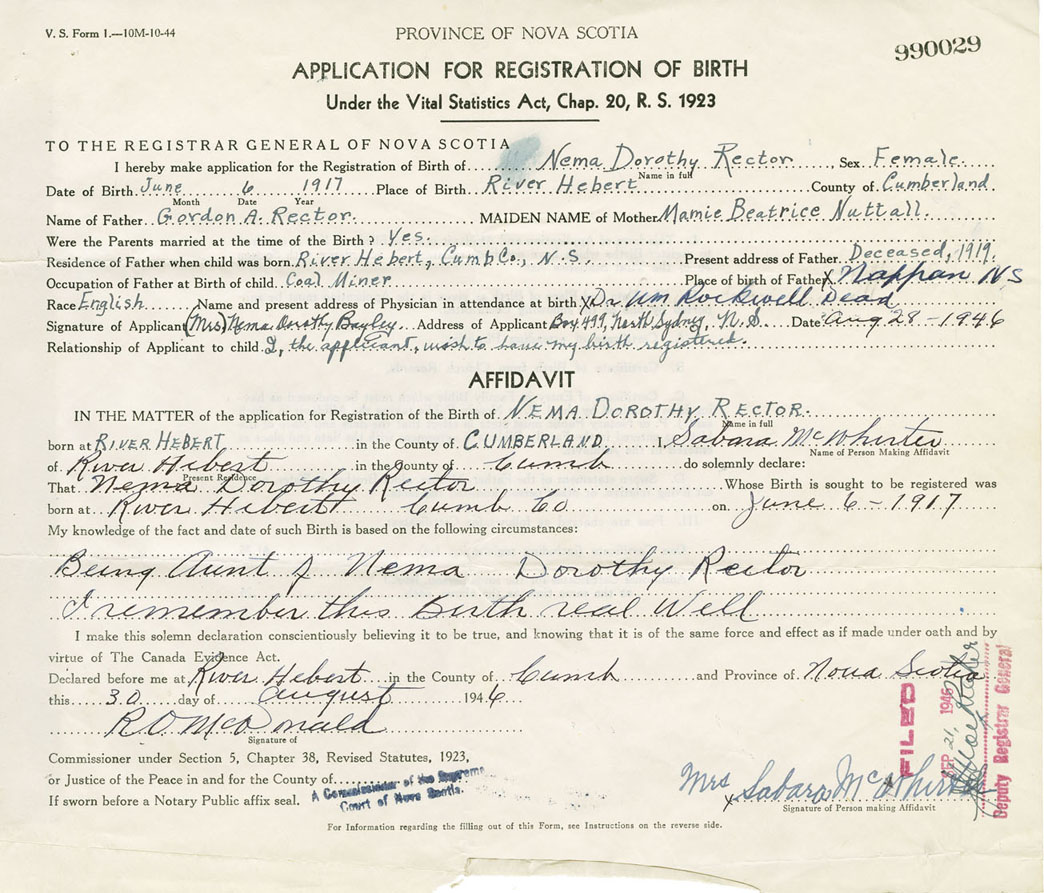 V. S. Form 1.—10M-10-44
PROVINCE OF NOVA SCOTIA
990029
APPLICATION FOR REGISTRATION OF BIRTH
Under the Vital Statistics Act, Chap. 20, R. S. 1923
TO THE REGISTRAR GENERAL OF NOVA SCOTIA
I hereby make application for the Registration of Birth of Nema Dorothy Rector, Sex Female.
Name in full
Date of Birth June 6 1917 Place of Birth River Hebert County of Cumberland.
Month Date Year
Name of Father Gordon A. Rector. MAIDEN NAME of Mother Mamie Beatrice Nuttall.
Were the Parents married at the time of the Birth? Yes.
Residence of Father when child was born River Hebert, Cumb Co., N.S. Present address of Father Deceased, 1919.
Occupation of Father at Birth of child Coal Miner Place of birth of Father X Nappan NS
Race English Name and present address of Physician in attendance at birth X Dr Wm Rockwell Dead
Signature of Applicant (Mrs) Nema Dorothy Bayley Address of Applicant Box 499, North Sydney, N.S. Date Aug 28 - 1946
Relationship of Applicant to child I, the applicant, wish to have my birth registered.
AFFIDAVIT
IN THE MATTER of the application for Registration of the Birth of NEMA DOROTHY RECTOR.
Name in full
born at RIVER HEBERT in the County of CUMBERLAND I, Sabara McWhirter
Name of Person Making Affidavit
of River Hebert in the County of Cumb do solemnly declare:
Present Residence
That Nema Dorothy Rector Whose Birth is sought to be registered was
born at River Hebert Cumb Co on June 6 - 1917
My knowledge of the fact and date of such Birth is based on the following circumstances:
Being Aunt of Nema Dorothy Rector
I remember this Birth real Well
I make this solemn declaration conscientiously believing it to be true, and knowing that it is of the same force and effect as if made under oath and by
virtue of The Canada Evidence Act.
Declared before me at River Hebert in the County of Cumb and Province of Nova Scotia
this 30 day of August 1946
R D McDonald
Signature of
Commissioner under Section 5, Chapter 38, Revised Statutes, 1923,
or Justice of the Peace in and for the County of
A Commissioner of the Supreme
Court of Nova Scotia.
If sworn before a Notary Public affix seal.
Mrs Sabara McWhirter
X
Signature of Person making Affidavit
FILED
SEP 21, 1946
Deputy Registrar General
For Information regarding the filling out of this Form, see Instructions on the reverse side.